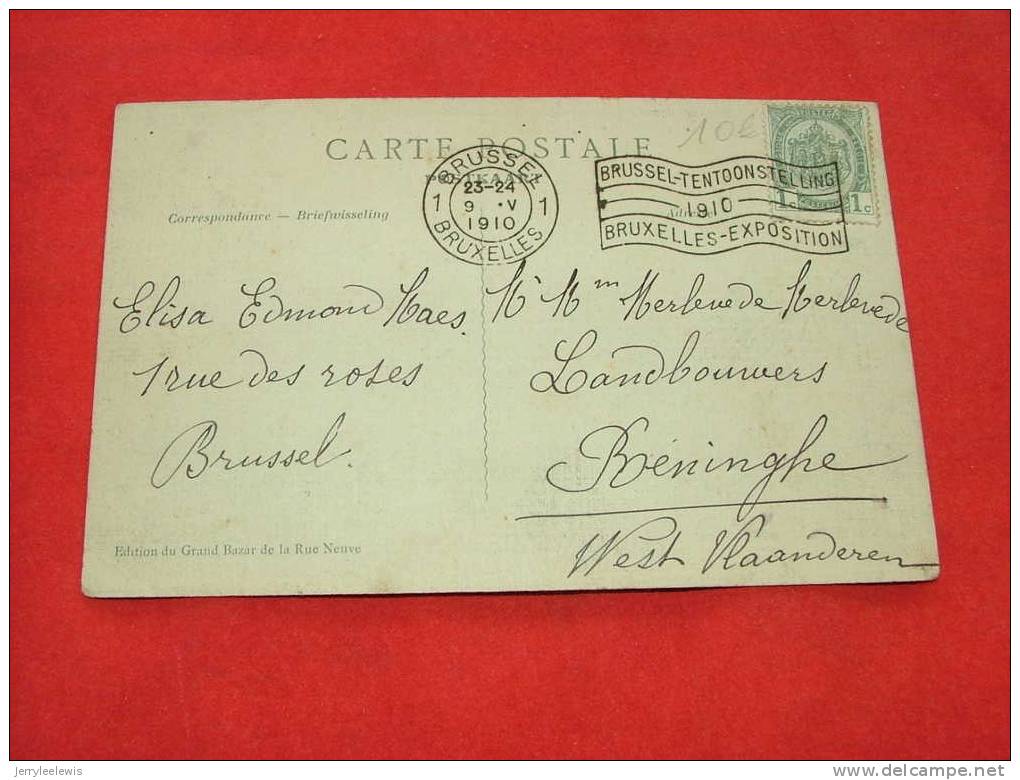 10€
CARTE POSTALE
POSTKAART
Correspondance — Briefwisseling
Adresse
BRUSSEL
1 23-24 1
9 V
1910
BRUXELLES
BRUSSEL-TENTOONSTELLING
1910
BRUXELLES-EXPOSITION
1c 1c
Elisa Edmond Maes.
1 rue des roses
Brussel.
Mr Mm Merlevede Merlevede
Landbouwers
Réninghe
West Vlaanderen
Edition du Grand Bazar de la Rue Neuve
jerryleelewis
© delcampe.net